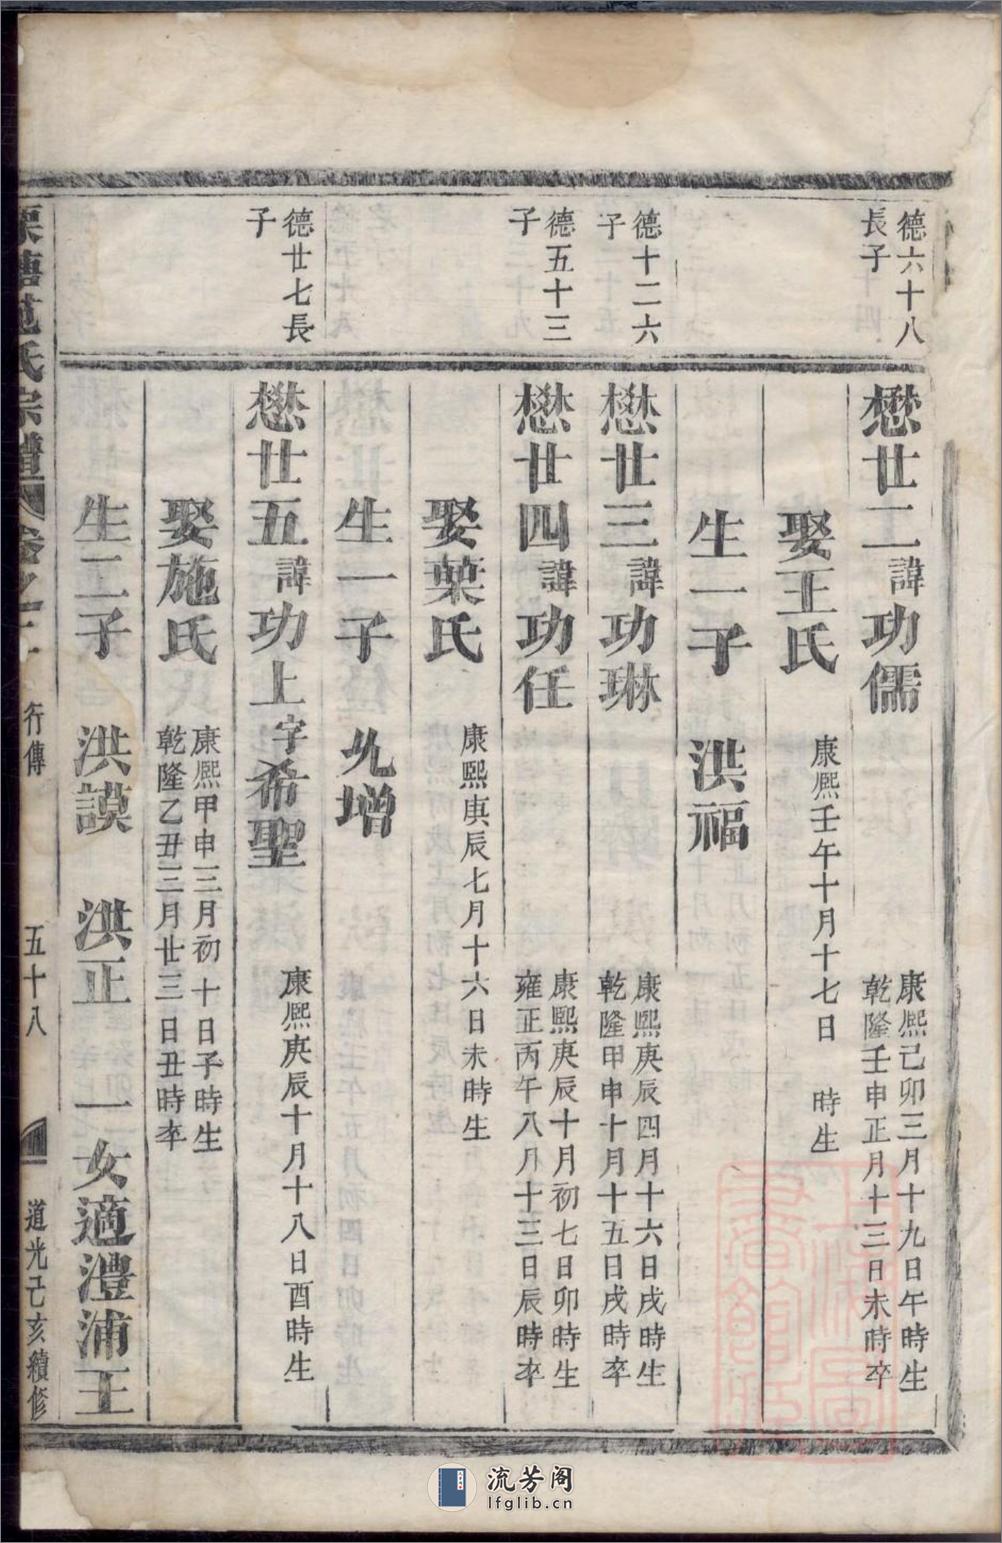 德六十八
長子
懋廿二諱功儒
康熙己卯三月十九日午時生
乾隆壬申正月十三日未時卒
娶王氏
康熙壬午十月十七日 時生
生一子 洪福
德十二六
子
懋廿三諱功琳
康熙庚辰四月十六日戌時生
乾隆甲申十月十五日戌時卒
德五十三
子
懋廿四諱功任
康熙庚辰十月初七日卯時生
雍正丙午八月十三日辰時卒
娶葉氏
康熙庚辰七月十六日未時生
生一子 允增
德廿七長
子
懋廿五諱功上字希聖
康熙庚辰十月十八日酉時生
娶施氏
康熙甲申三月初十日子時生
乾隆乙丑三月廿三日丑時卒
生二子 洪謨 洪正 一女適澧浦王
范氏宗譜 卷之 行傳 五十八 道光己亥續修
流芳阁
lfglib.cn